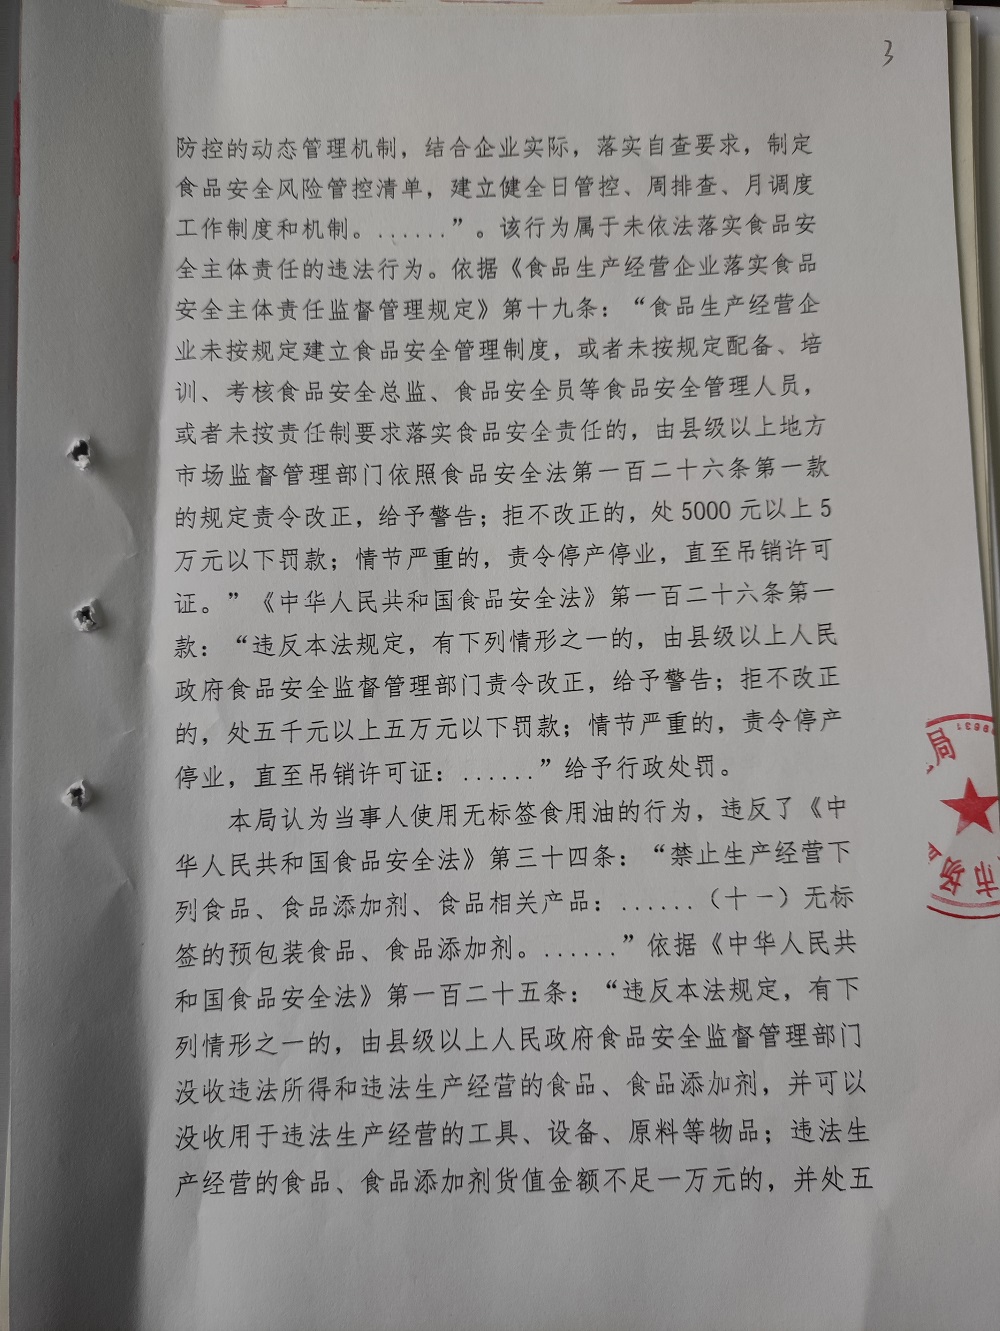 3
防控的动态管理机制，结合企业实际，落实自查要求，制定
食品安全风险管控清单，建立健全日管控、周排查、月调度
工作制度和机制。......”。该行为属于未依法落实食品安
全主体责任的违法行为。依据《食品生产经营企业落实食品
安全主体责任监督管理规定》第十九条：“食品生产经营企
业未按规定建立食品安全管理制度，或者未按规定配备、培
训、考核食品安全总监、食品安全员等食品安全管理人员，
或者未按责任制要求落实食品安全责任的，由县级以上地方
市场监督管理部门依照食品安全法第一百二十六条第一款
的规定责令改正，给予警告；拒不改正的，处5000元以上5
万元以下罚款；情节严重的，责令停产停业，直至吊销许可
证。”《中华人民共和国食品安全法》第一百二十六条第一
款：“违反本法规定，有下列情形之一的，由县级以上人民
政府食品安全监督管理部门责令改正，给予警告；拒不改正
的，处五千元以上五万元以下罚款；情节严重的，责令停产
停业，直至吊销许可证：......”给予行政处罚。
本局认为当事人使用无标签食用油的行为，违反了《中
华人民共和国食品安全法》第三十四条：“禁止生产经营下
列食品、食品添加剂、食品相关产品：......（十一）无标
签的预包装食品、食品添加剂。......”依据《中华人民共
和国食品安全法》第一百二十五条：“违反本法规定，有下
列情形之一的，由县级以上人民政府食品安全监督管理部门
没收违法所得和违法生产经营的食品、食品添加剂，并可以
没收用于违法生产经营的工具、设备、原料等物品；违法生
产经营的食品、食品添加剂货值金额不足一万元的，并处五
局
市场